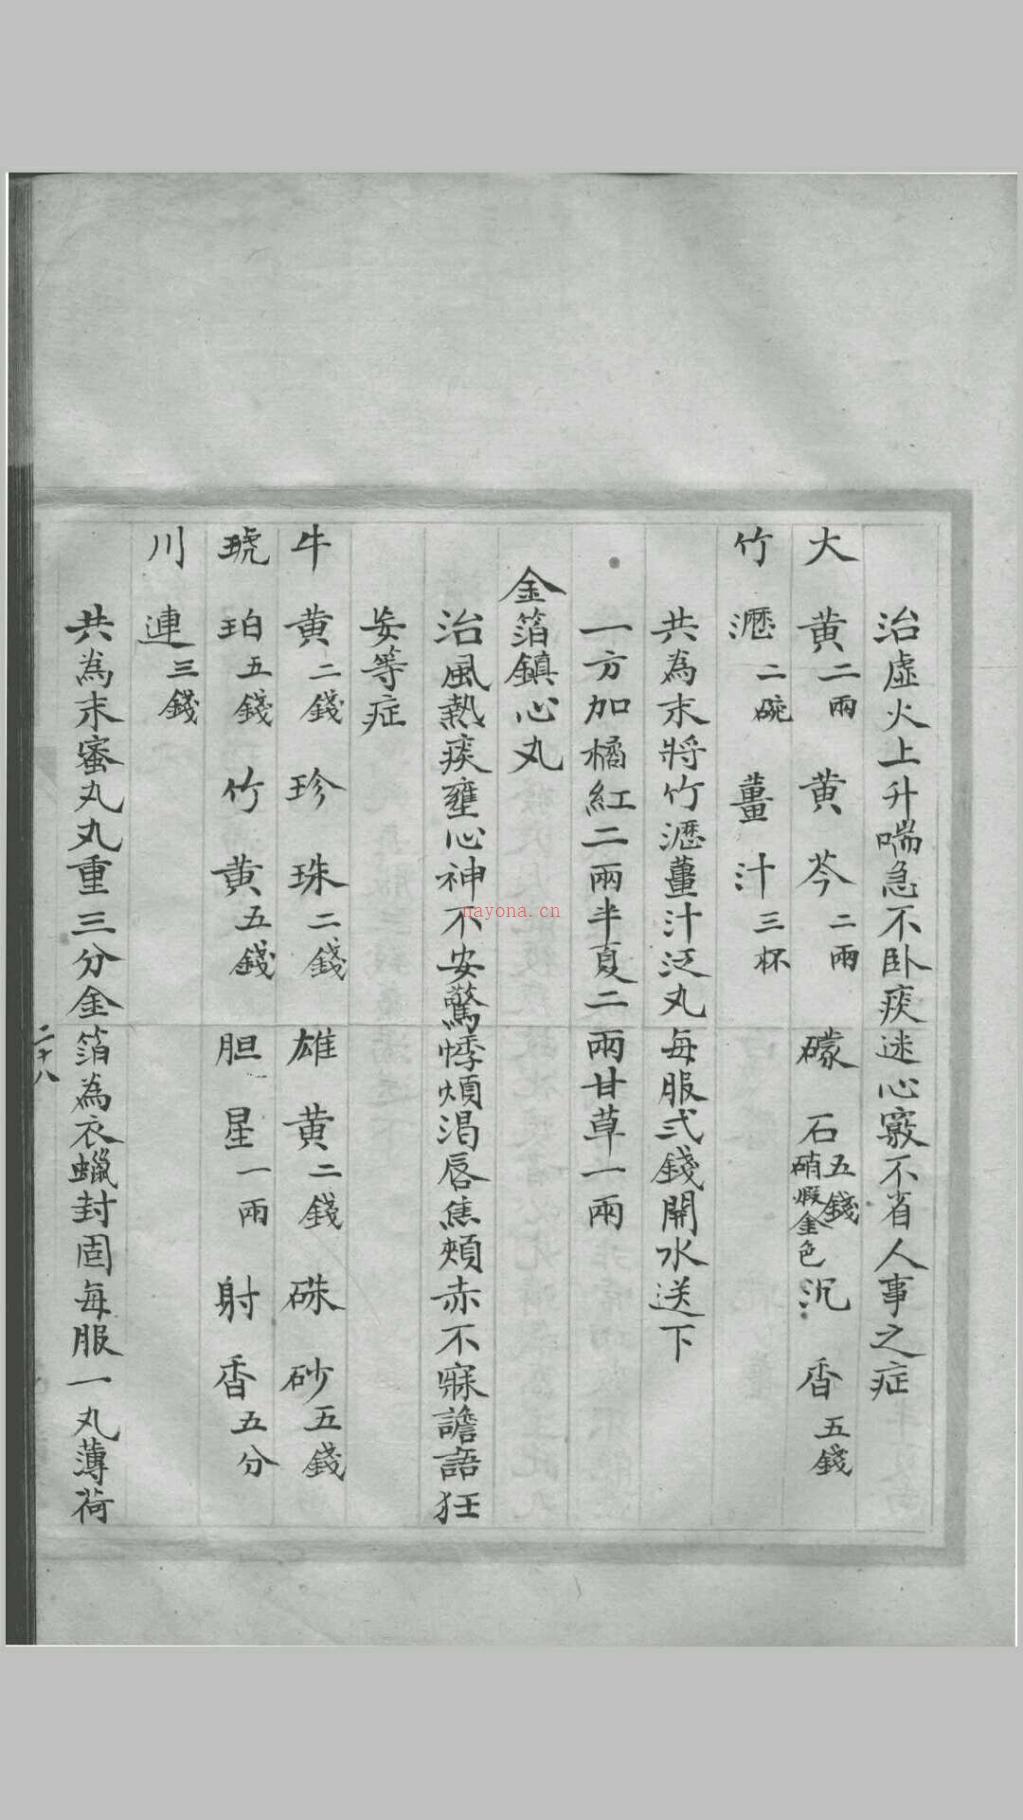 治虛火上升喘急不卧痰迷心竅不省人事之症
大黄二兩 黄芩二兩 礞石五錢硝煅金色 沉香五錢
竹瀝二碗 薑汁三杯
共為末將竹瀝薑汁泛丸每服弍錢開水送下
一方加橘紅二兩半夏二兩甘草一兩
金箔鎮心丸
治風熱痰壅心神不安驚悸煩渴唇焦頰赤不寐譫語狂
妄等症
牛黄二錢 珍珠二錢 雄黄二錢 硃砂五錢
琥珀五錢 竹黄五錢 胆星一兩 射香五分
川連三錢
共為末蜜丸丸重三分金箔為衣蠟封固每服一丸薄荷
二十八
nayona.cn